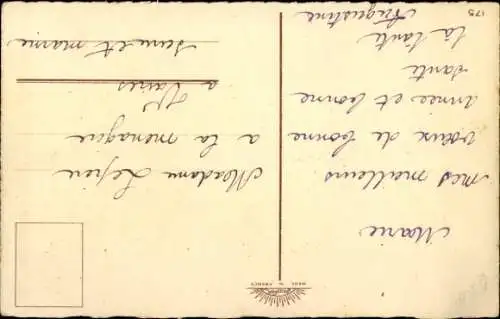 Marie
mes meilleurs
vœux de bonne
année et bonne
santé
la tante
Augustine
Madame Lepieu
a la menagerie
a Vaires
seine et marne
MADE IN FRANCE
175